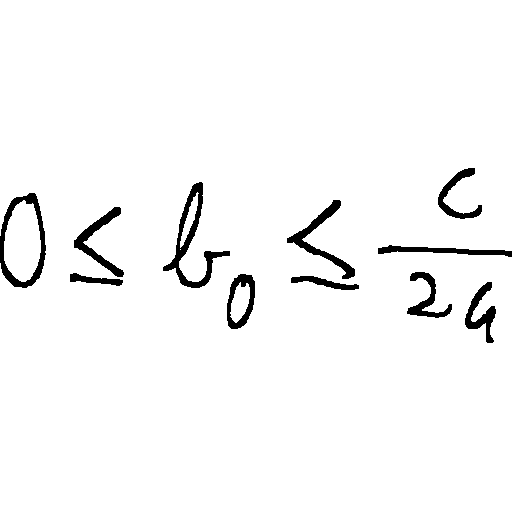 0 ≤ b₀ ≤ c/(2a)